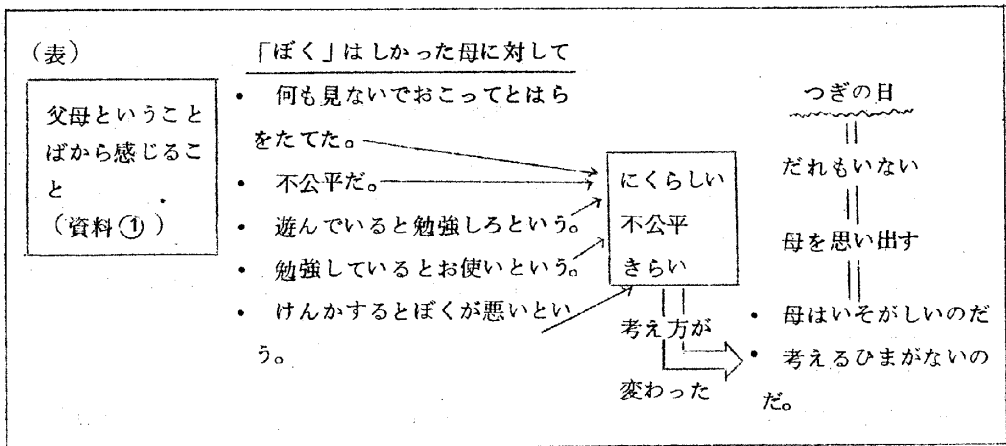 （表）
父母というこ​と
ばから感じるこ
と
（資料①）
「ぼく」はしかった母に対して
・ 何も見ないでおこってとはら
をたてた。
・ 不公平だ。
・ 遊んでいると勉強しろという。
・ 勉強しているとお使いという。
・ けんかするとぼくが悪いとい
う。
にくらしい
不公平
きらい
考え方が
変わった
つぎの日
だれもいない
母を思い出す
・ 母はいそがしいのだ
・ 考えるひまがないの
だ。